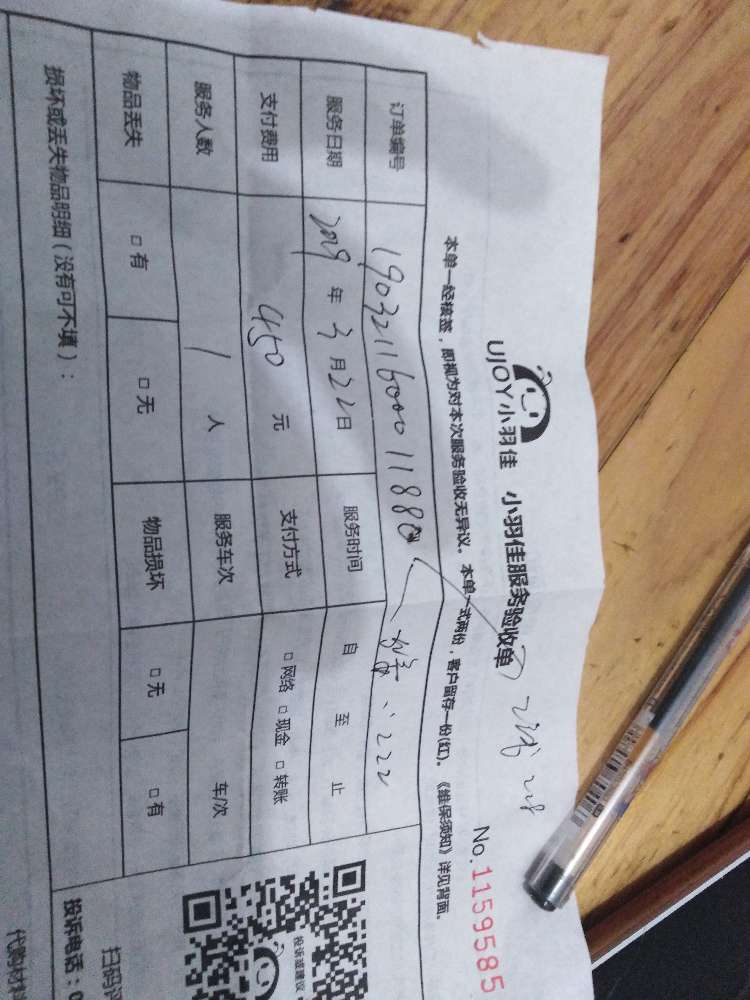 UJOY小羽佳 小羽佳服务验收单
No.1159585
本单一经核签，即视为对本次服务验收无异议。本单一式两份，客户留存一份(红)。《维保须知》详见背面。
订单编号 1903211600011880
服务日期 2019年3月22日 服务时间 自 至 止
支付费用 450 元 支付方式 □网络 □现金 □转账
服务人数 1 人 服务车次 车/次
物品丢失 □有 □无 物品损坏 □无 □有
损坏或丢失物品明细（没有可不填）：
投诉或建议
投诉电话：0
扫码
代购材料